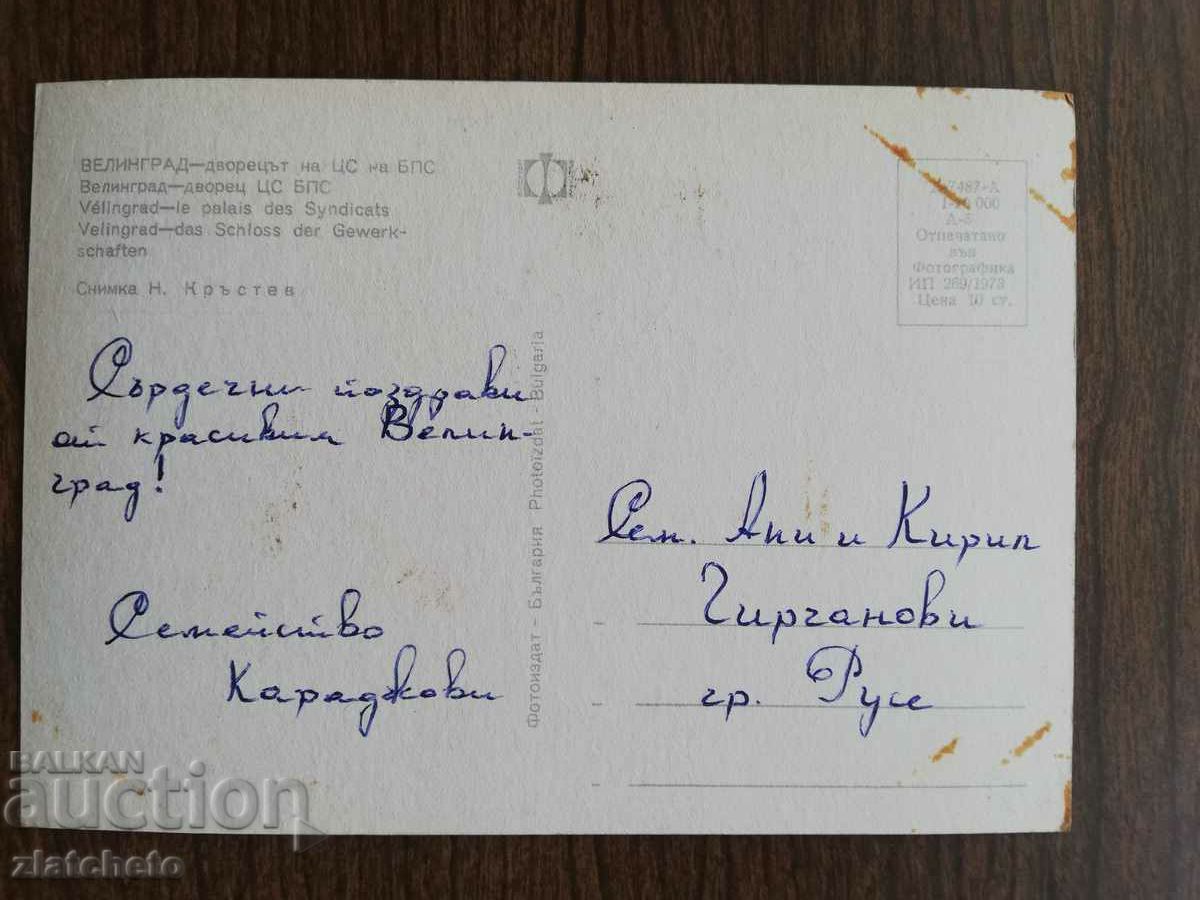 ВЕЛИНГРАД—дворецът на ЦС на БПС
Велинград—дворец ЦС БПС
Vélingrad—le palais des Syndicats
Velingrad—das Schloss der Gewerk-
schaften
Снимка Н. Кръстев
7487-А
000
А-5
Отпечатано
във
Фотографика
ИП 269/1973
Цена 10 ст.
Сърдечни поздрави
от красивия Велин-
град!
Семейство
Караджови
Фотоиздат - България Photoizdat - Bulgaria
Сем. Ани и Кирил
Гирчанови
гр. Русе
BALKAN
auction
zlatcheto